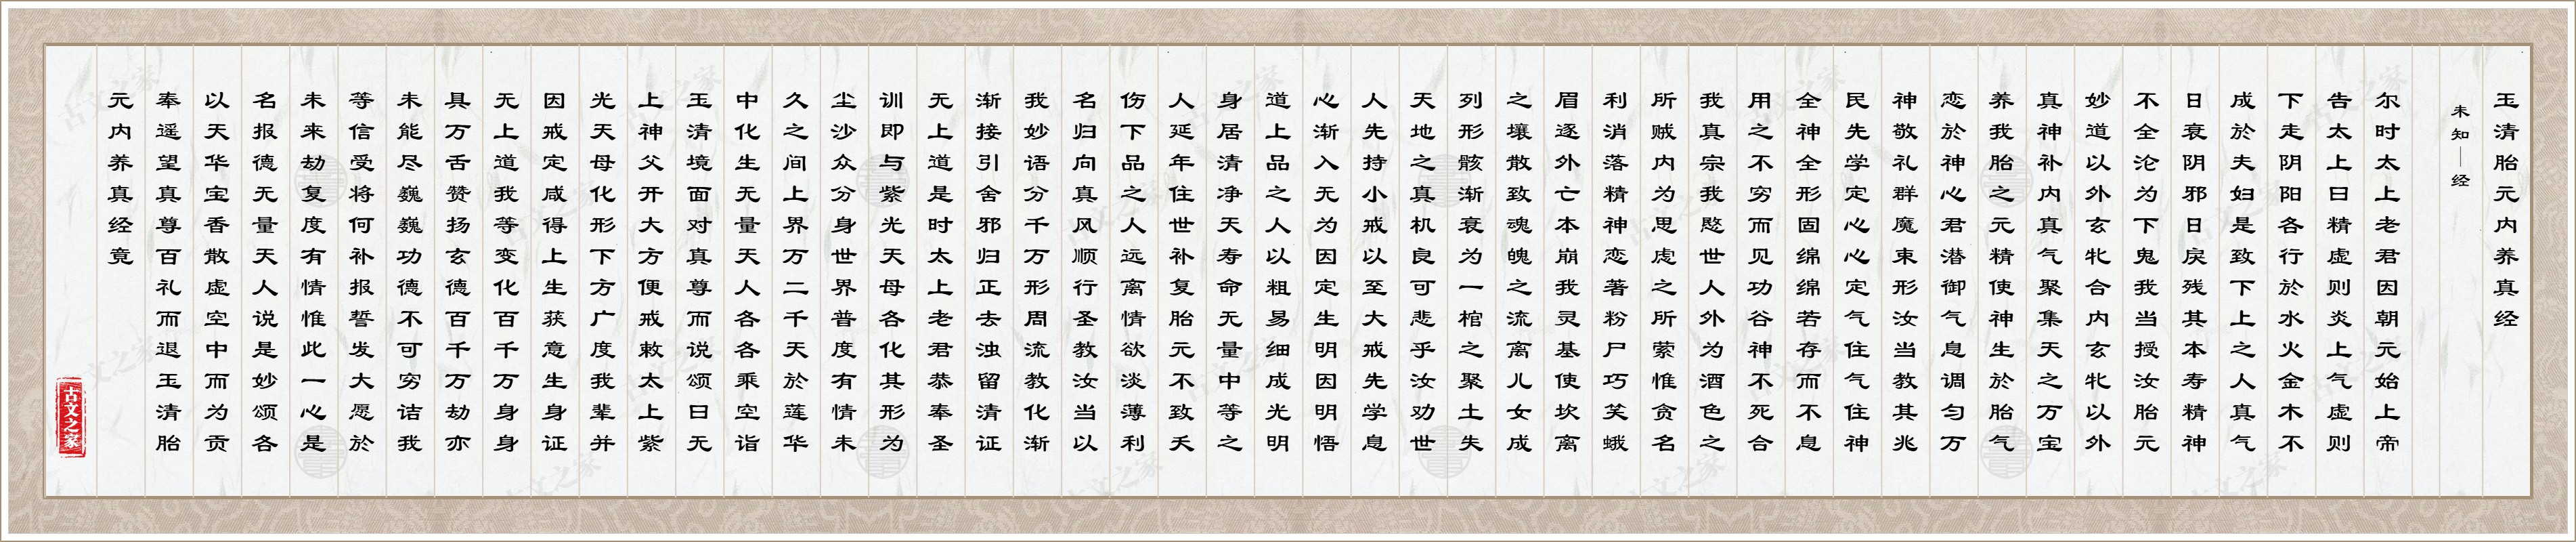 玉清胎元内养真经
未知—经
尔时太上老君因朝元始上帝
告太上曰精虚则炎上气虚则
下走阴阳各行於水火金木不
成於夫妇是致下上之人真气
日衰阴邪日戾残其本寿精神
不全沦为下鬼我当授汝胎元
妙道以外玄牝合内玄牝以外
真神补内真气聚集天之万宝
养我胎之元精使神生於胎气
恋於神心君潜御气息调匀万
神敬礼群魔束形汝当教其兆
民先学定心心定气住气住神
全神全形固绵绵若存而不息
用之不穷而见功谷神不死合
我真宗我愍世人外为酒色之
所贼内为思虑之所萦惟贪名
利消落精神恋著粉尸巧笑蛾
眉逐外亡本崩我灵基使坎离
之壤散致魂魄之流离儿女成
列形骸渐衰为一棺之聚土失
天地之真机良可悲乎汝劝世
人先持小戒以至大戒先学息
心渐入无为因定生明因明悟
道上品之人以粗易细成光明
身居清净天寿命无量中等之
人延年住世补复胎元不致夭
伤下品之人远离情欲淡薄利
名归向真风顺行圣教汝当以
我妙语分千万形周流教化渐
渐接引舍邪归正去浊留清证
无上道是时太上老君恭奉圣
训即与紫光天母各化其形为
尘沙众分身世界普度有情未
久之间上界万二千天於莲华
中化生无量天人各各乘空诣
玉清境面对真尊而说颂曰无
上神父开大方便戒敕太上紫
光天母化形下方广度我辈并
因戒定咸得上生获意生身证
无上道我等变化百千万身身
具万舌赞扬玄德百千万劫亦
未能尽巍巍功德不可穷诘我
等信受将何补报誓发大愿於
未来劫复度有情惟此一心是
名报德无量天人说是妙颂各
以天华宝香散虚空中而为贡
奉遥望真尊百礼而退玉清胎
元内养真经竟
古文之家